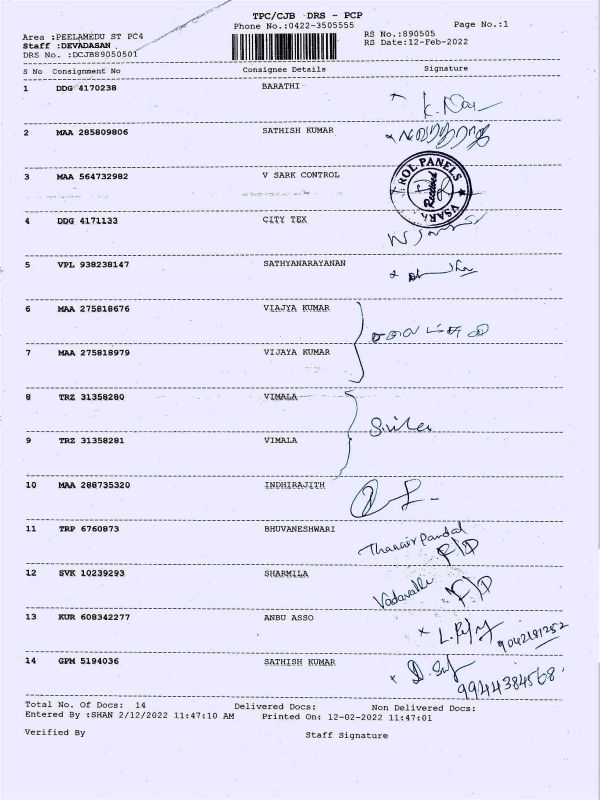 TPC/CJB DRS - PCP
Phone No.:0422-3505555 Page No.:1
Area :PEELAMEDU ST PC4 RS No.:890505
Staff :DEVADASAN RS Date:12-Feb-2022
DRS No. :DCJB89050501
S No Consignment No Consignee Details Signature
1 DDG 4170238 BARATHI
2 MAA 285809806 SATHISH KUMAR
3 MAA 564732982 V SARK CONTROL
ROL PANELS VSARK Received
4 DDG 4171133 CITY TEX
5 VPL 938238147 SATHYANARAYANAN
6 MAA 275818676 VIAJYA KUMAR
7 MAA 275818979 VIJAYA KUMAR
8 TRZ 31358280 VIMALA
9 TRZ 31358281 VIMALA
10 MAA 288735320 INDHIRAJITH
11 TRP 6760873 BHUVANESHWARI
12 SVK 10239293 SHARMILA
13 KUR 608342277 ANBU ASSO
14 GPM 5194036 SATHISH KUMAR
9944384568
Total No. Of Docs: 14 Delivered Docs: Non Delivered Docs:
Entered By :SHAN 2/12/2022 11:47:10 AM Printed On: 12-02-2022 11:47:01
Verified By Staff Signature